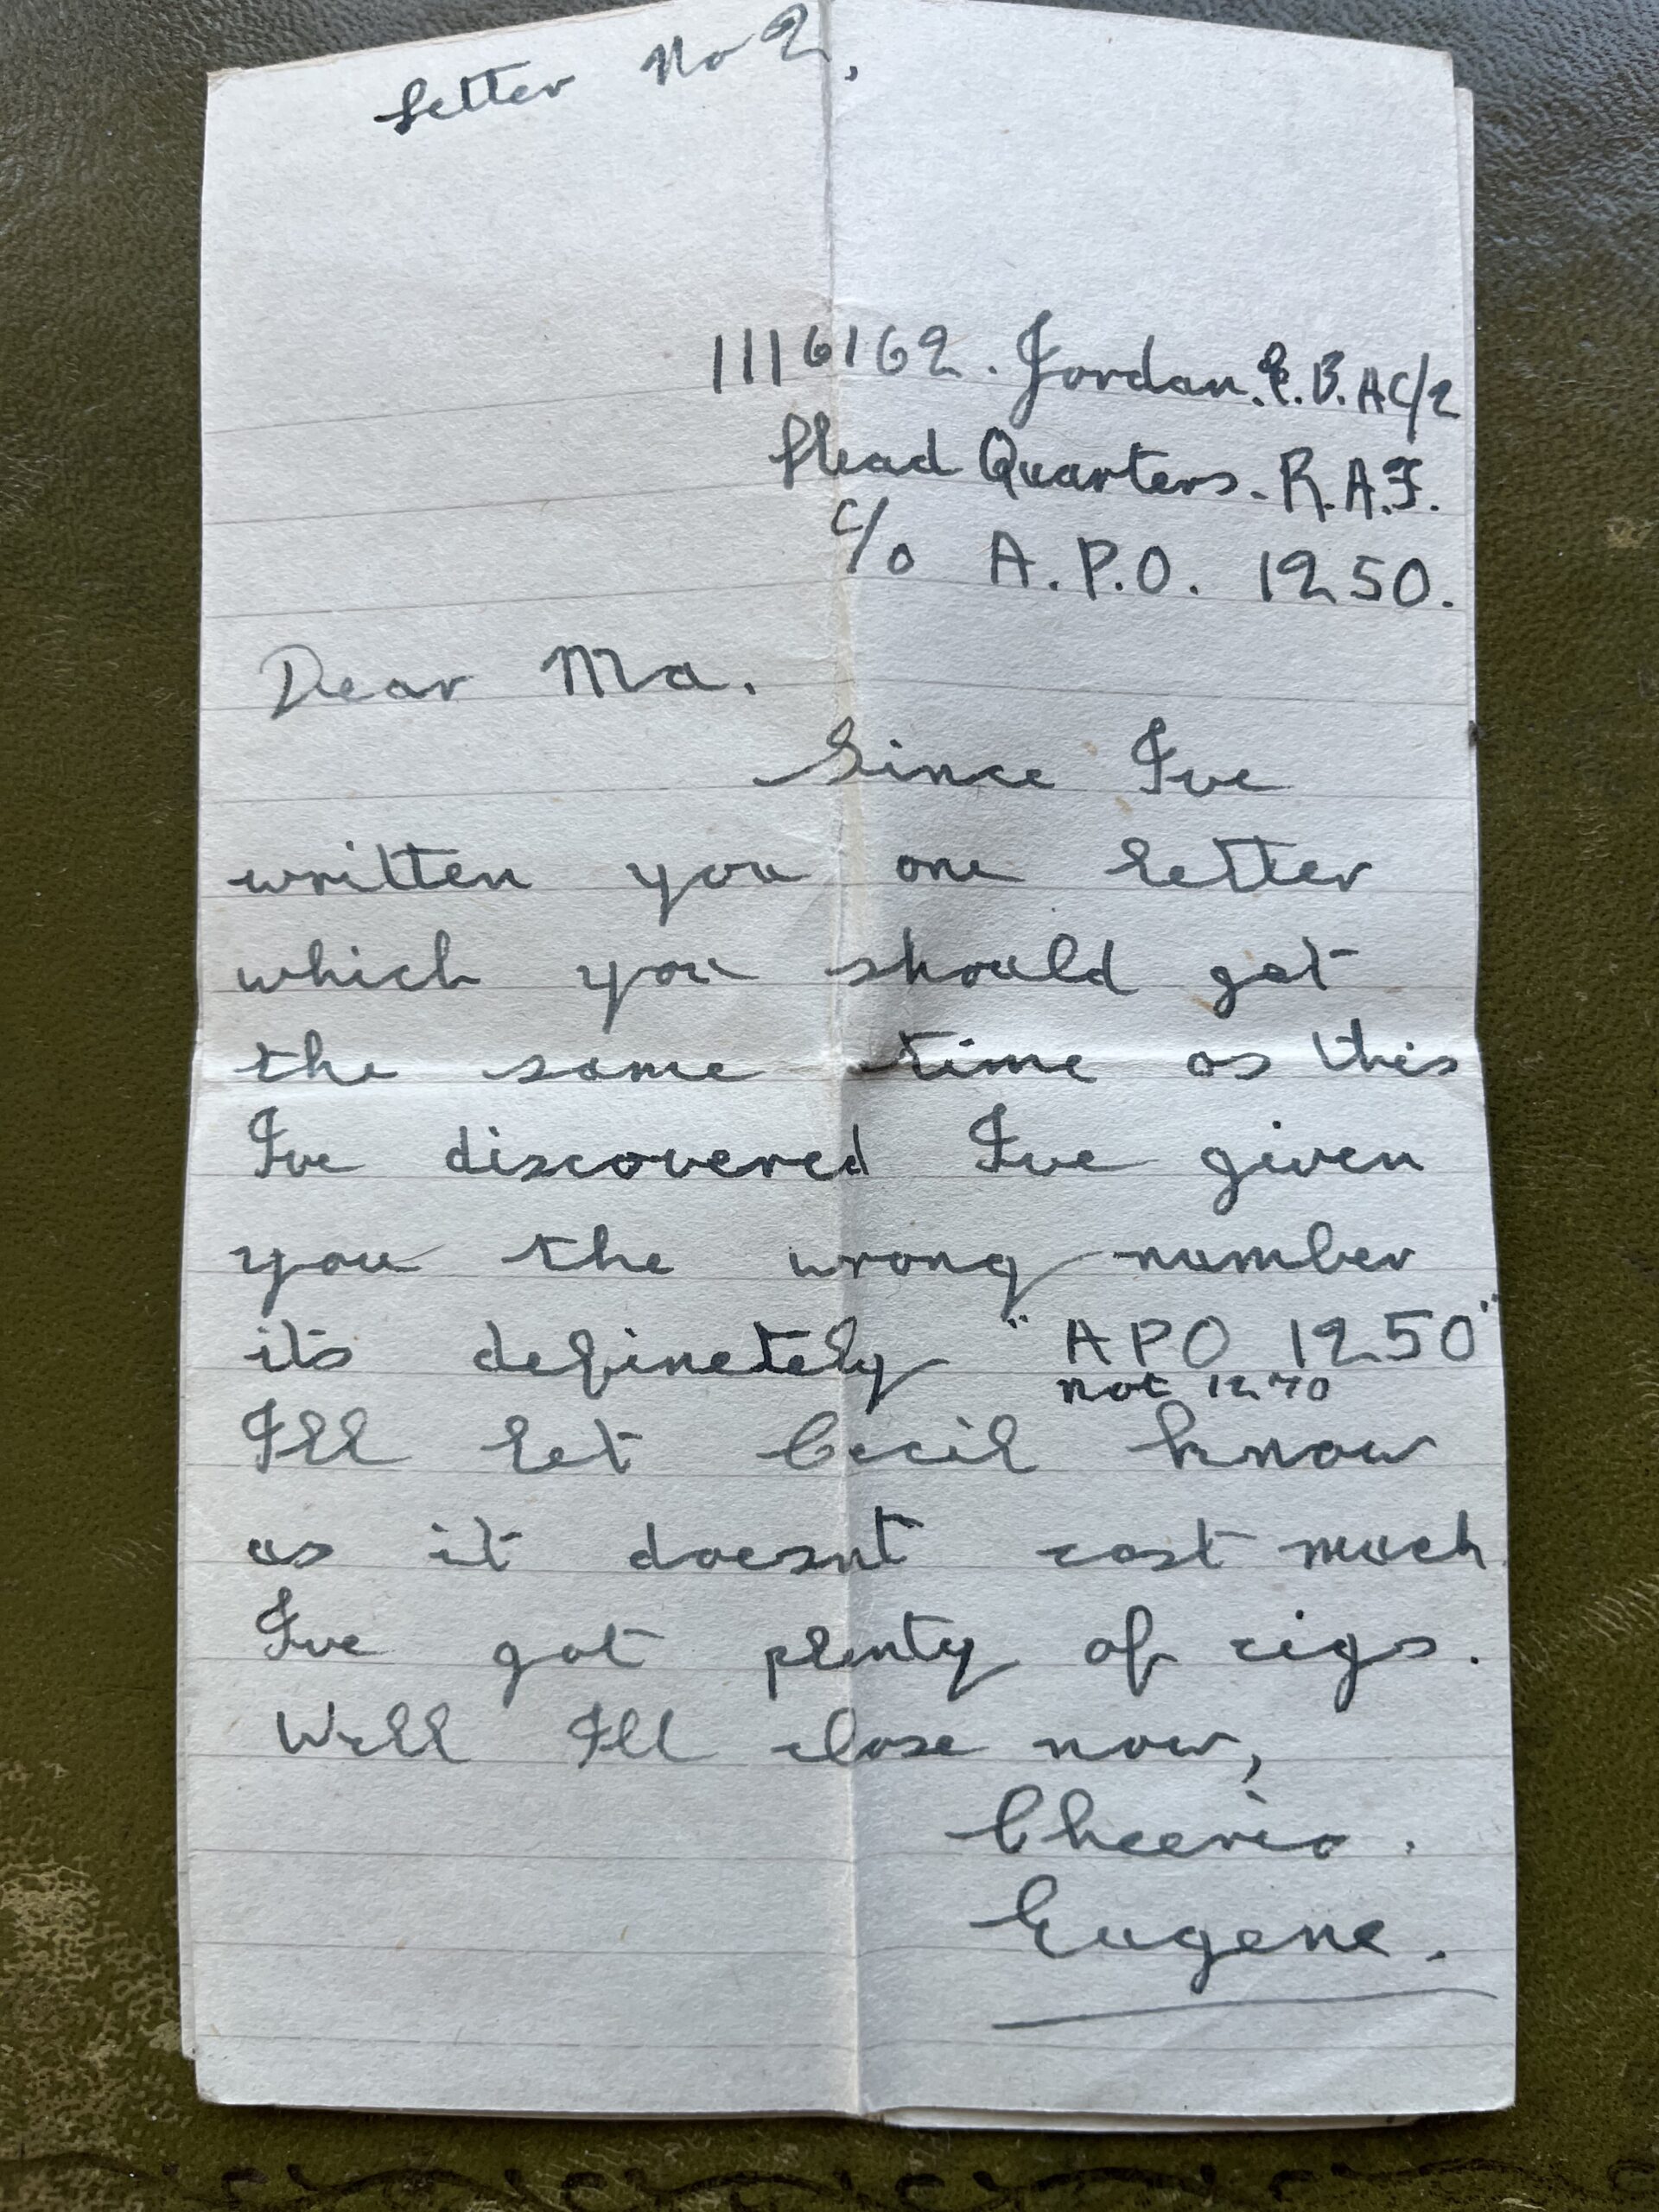 Letter No 2,
1116162. Jordan. E. B. AC/2
Head Quarters. R.A.F.
c/o A.P.O. 1250.
Dear Ma.
Since Ive
written you one letter
which you should get
the same time as this
Ive discovered Ive given
you the wrong number
its definetely "APO 1250"
not 1270
I'll let Cecil know
as it doesnt cost much.
Ive got plenty of cigs.
Well I'll close now,
Cheerio.
Eugene.